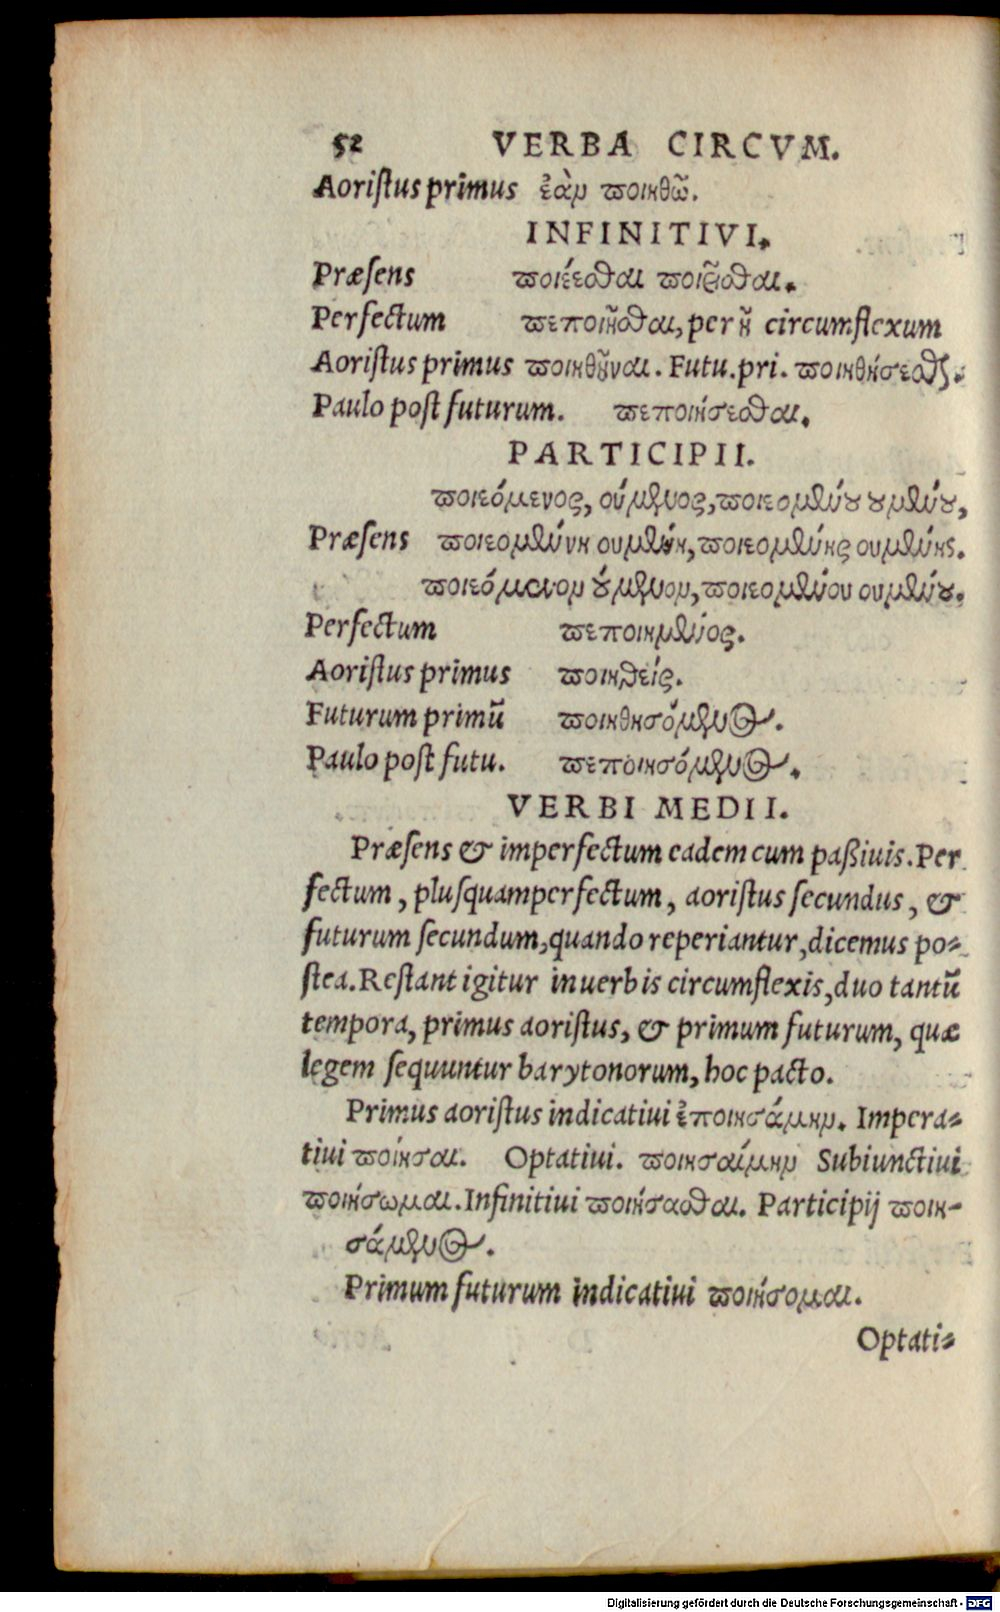 52 VERBA CIRCVM.
Aoriſtus primus ἐὰν ποιηθῶ.
INFINITIVI.
Præſens ποιέεσθαι ποιεῖσθαι.
Perfectum πεποιῆσθαι, per ῆ circumflexum
Aoriſtus primus ποιηθῆναι. Futu. pri. ποιηθήσεσθαι.
Paulo poſt futurum. πεποιήσεσθαι.
PARTICIPII.
ποιεόμενος, ούμενος, ποιεομένου ουμένου,
Præſens ποιεομένη ουμένη, ποιεομένης ουμένης.
ποιεόμενον ούμενον, ποιεομένου ουμένου.
Perfectum πεποιημένος.
Aoriſtus primus ποιηθείς.
Futurum primũ ποιηθησόμενος.
Paulo poſt futu. πεποιησόμενος.
VERBI MEDII.
Præſens & imperfectum eadem cum paßiuis. Per
fectum, pluſquamperfectum, aoriſtus ſecundus, &
futurum ſecundum, quando reperiantur, dicemus po-
ſtea. Reſtant igitur in uerbis circumflexis, duo tantũ
tempora, primus aoriſtus, & primum futurum, quæ
legem ſequuntur barytonorum, hoc pacto.
Primus aoriſtus indicatiui ἐποιησάμην. Impera-
tiui ποίησαι. Optatiui. ποιησαίμην Subiunctiui
ποιήσωμαι. Infinitiui ποιήσασθαι. Participij ποιη-
σάμενος.
Primum futurum indicatiui ποιήσομαι.
Optati-
Digitalisierung gefördert durch die Deutsche Forschungsgemeinschaft - DFG